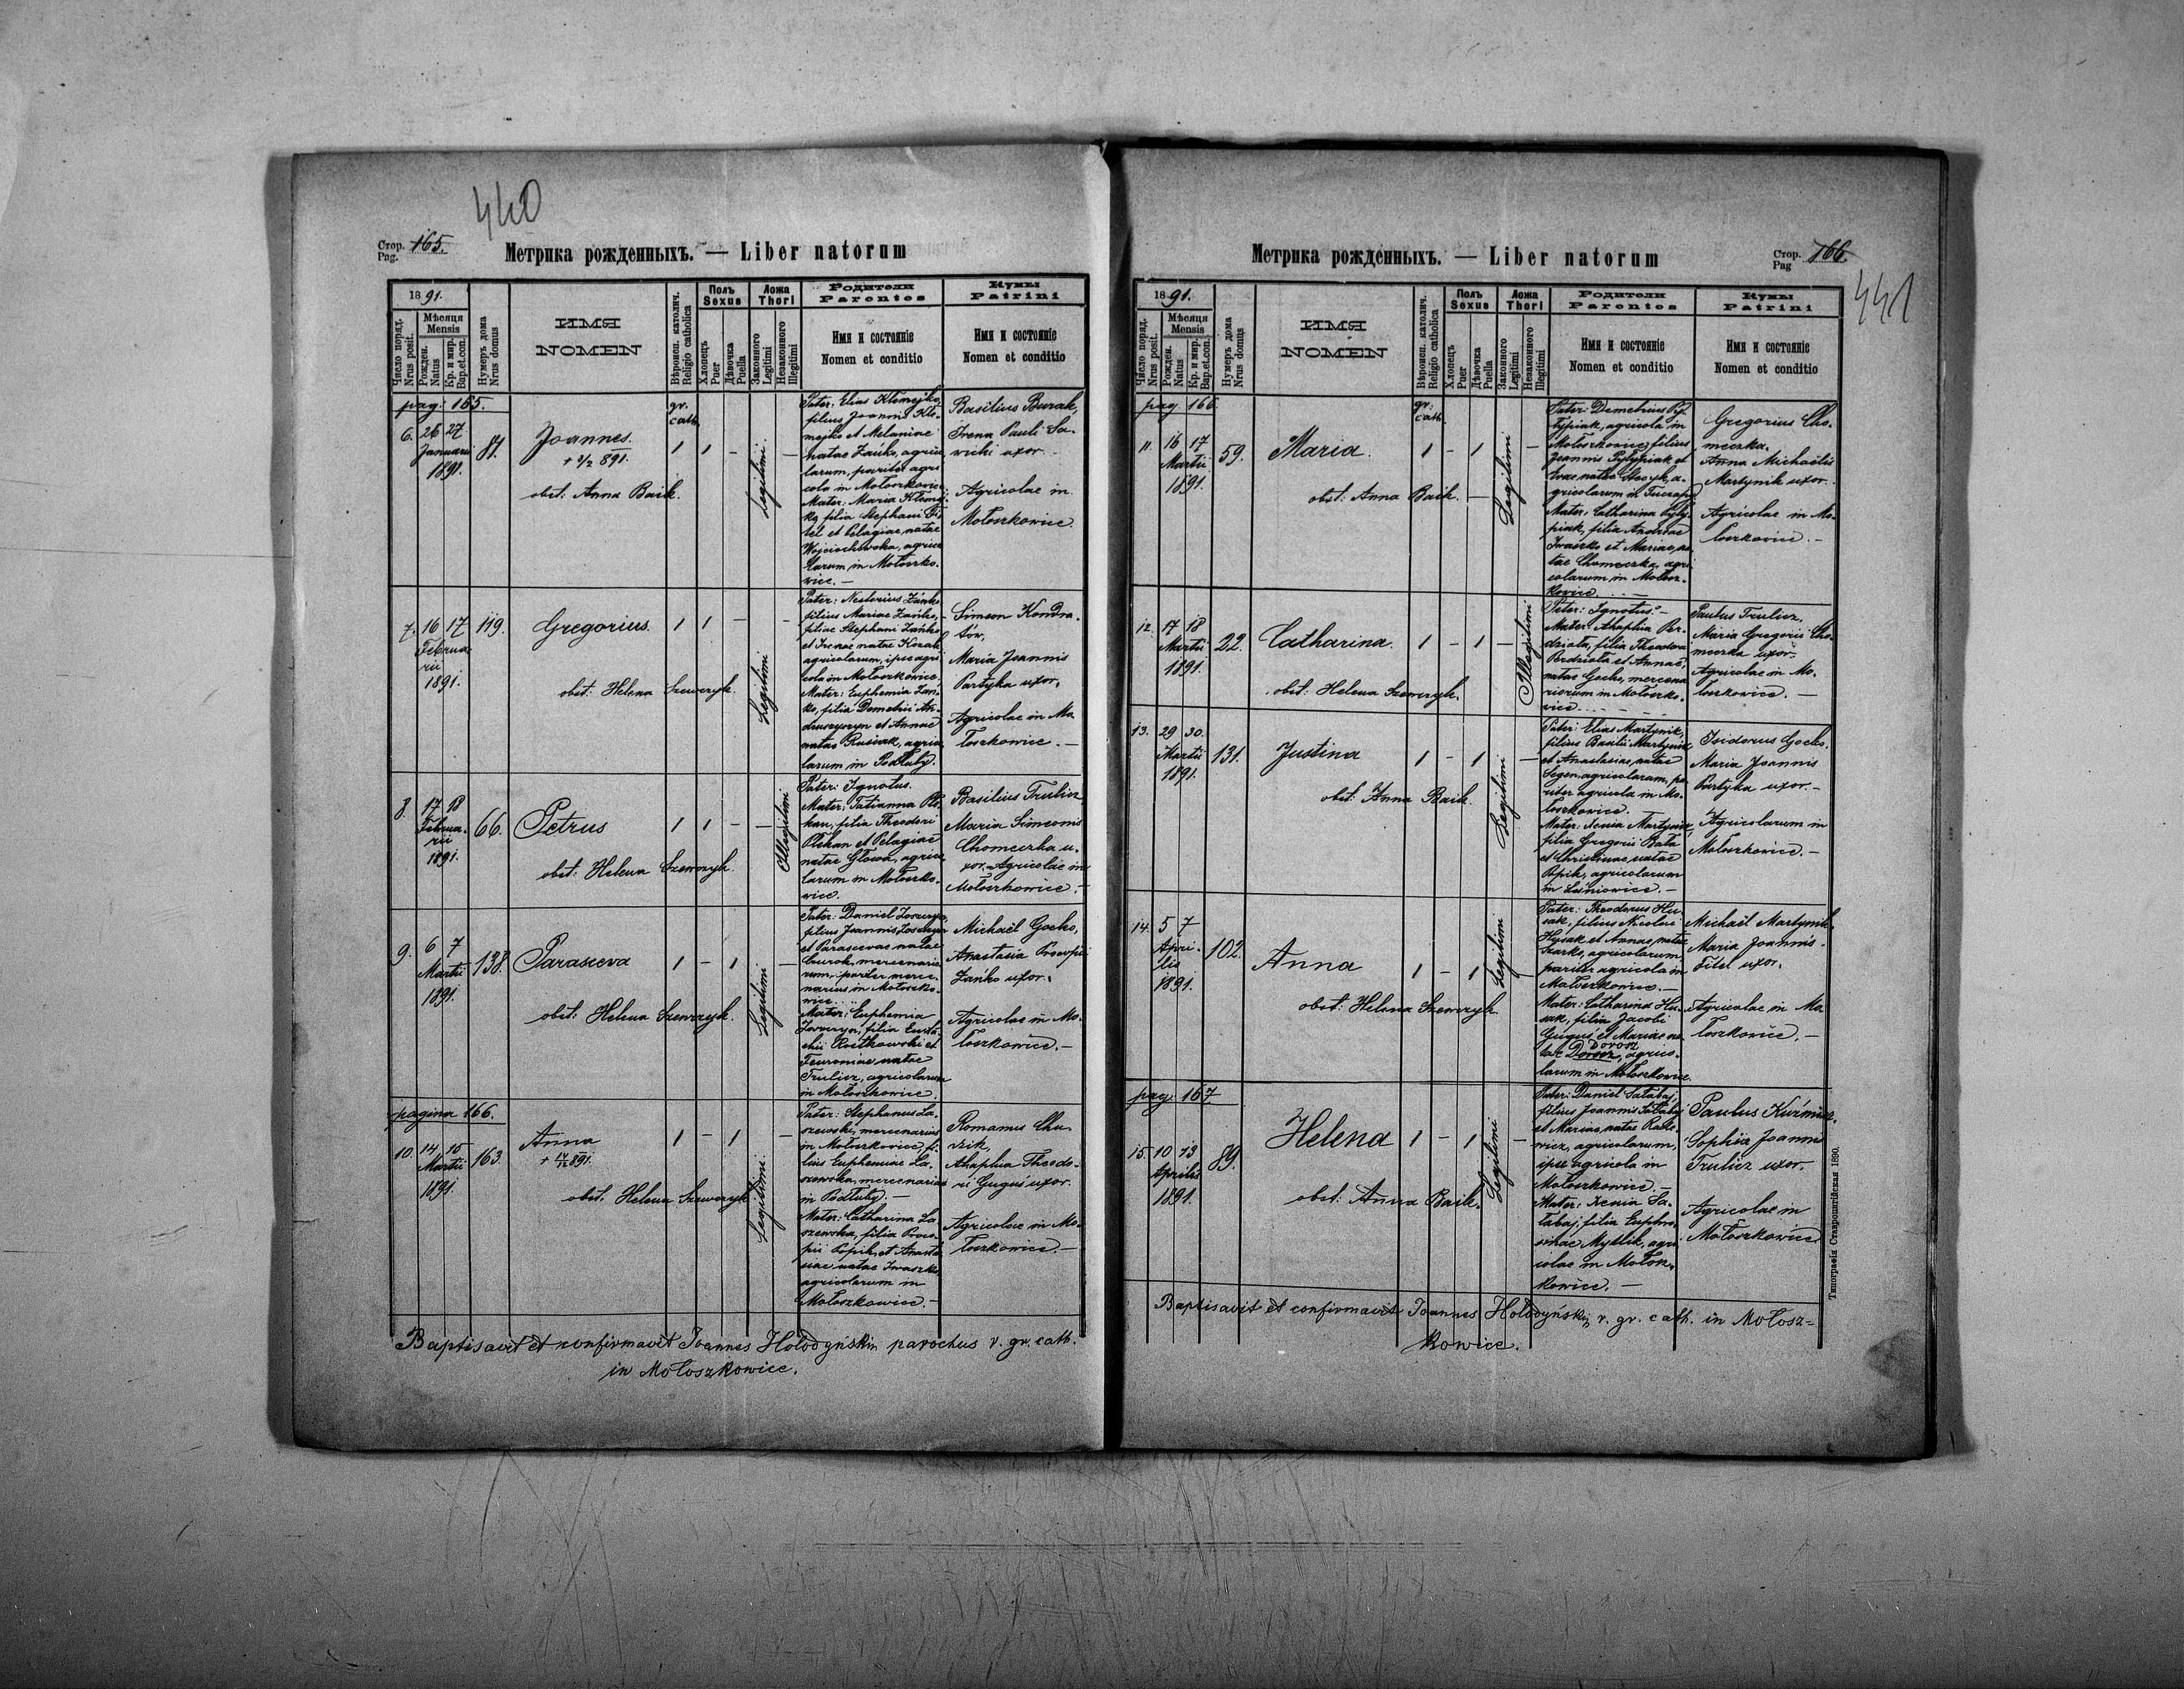 440
Стор. 165.
Pag.
Метрика рожденныхъ. — Liber natorum
1891.
Число поряд.
Nrus posit.
Мѣсяця
Mensis
Рожден.
Natus
Кр. и мир.
Bap. et con.
Нумеръ дома
Nrus domus
ИМЯ
NOMEN
Вѣроисп. католич.
Religio catholica
Полъ
Sexus
Хлопецъ
Puer
Дѣвочка
Puella
Ложа
Thori
Законного
Legitimi
Незаконного
Illegitimi
Родители
Parentes
Имя и состояніе
Nomen et conditio
Кумы
Patrini
Имя и состояніе
Nomen et conditio
pag: 165.
6. 26 27
Januarii
1891.
81.
Joannes.
+ 3/2 891.
obst: Anna Baik.
gr.
cath.
1 1 - Legitimi -
Pater: Elias Klemejko,
filius Joannis Kle-
mejko et Melaniae
natae Zańko, agrico
larum, pariter agri
cola in Mołoszkowice
Mater: Maria Klemej
ko, filia Stephani Fi
tel et Pelagiae, natae
Wojciechowska, agrico
larum, in Mołoszko-
wice. —
Basilius Burak,
Irena Pauli Sa-
wicki uxor.
Agricolae in
Mołoszkowice.
7. 16 17
Februa
rii
1891.
119.
Gregorius.
obst: Helena Szewczyk.
1 1 - Legitimi -
Pater: Nestorius Zańko
filius Mariae Zańko,
filiae Stephani Zańko
et Irenae natae Kozak
agricolarum, ipse agri
cola in Mołoszkowice,
Mater: Euphemia Zań-
ko, filia Demetrii An-
druszczyszyn et Annae
natae Rusiak, agrico
larum in Podłuby.
Simeon Kondra-
tów,
Maria Joannis
Partyka uxor,
Agricolae in Mo
łoszkowice. —
8. 17 18
Februa-
rii
1891.
66.
Petrus
obst: Helena Szewczyk.
1 1 - - Illegitimi
Pater: Ignotus.
Mater: Tatianna Ple-
kan, filia Theodori
Plekan et Pelagiae
natae Głowa, agrico
larum in Mołoszko-
wice.
Basilius Trulicz
Maria Simeonis
Chomeczka u-
xor. Agricolae in
Mołoszkowice. —
9. 6 7
Martii
1891.
138.
Parasceva
obst: Helena Szewczyk.
1 - 1 Legitimi -
Pater: Daniel
filius Joannis
et Parascevae natae
mercenario
rum, pariter merce-
narius in Mołoszko-
wice.
Mater: Euphemia
filia Eusta
chii Rostkowski et
Feuroniae natae
Trulicz, agricolarum
in Mołoszkowice.
Michaël Gocko,
Anastasia Procopii
Zańko uxor.
Agricolae in Mo-
łoszkowice. —
pagina 166.
10. 14 15
Martii
1891.
163.
Anna
obst. Helena Szewczyk.
1 - 1 Legitimi. -
Pater: Stephanus La-
szewski, mercenarius
in Mołoszkowice, fi-
lius Euphemiae La-
szewska, mercenariae
in Podłuby. —
Mater: Catharina La
szewska, filia Proco-
pii Popik, et Anasta
siae natae Iwaszko,
agricolarum in
Mołoszkowice. —
Romanus Chu-
dzik,
Ahaphia Theodo-
ri Guguś uxor.
Agricolae in Mo-
łoszkowice. —
Baptisavit et confirmavit Joannes Hołodyński, parochus r. gr. cath.
in Mołoszkowice.
Метрика рожденныхъ. — Liber natorum
Стор. 166.
Pag
441
1891.
Число поряд.
Nrus posit.
Мѣсяця
Mensis
Рожден.
Natus
Кр. и мир.
Bap. et con.
Нумеръ дома
Nrus domus
ИМЯ
NOMEN
Вѣроисп. католич.
Religio catholica
Полъ
Sexus
Хлопецъ
Puer
Дѣвочка
Puella
Ложа
Thori
Законного
Legitimi
Незаконного
Illegitimi
Родители
Parentes
Имя и состояніе
Nomen et conditio
Кумы
Patrini
Имя и состояніе
Nomen et conditio
pag. 166.
11. 16 17
Martii
1891.
59.
Maria.
obst: Anna Baik. —
gr:
cath.
1 - 1 Legitimi -
Pater: Demetrius Py-
łypiak, agricola in
Mołoszkowice, filius
Joannis Pyłypiak et
Evae natae Stecyk, a-
gricolarum in Tuczapy
Mater: Catharina Pyły-
piak, filia Andreae
Iwaszko et Mariae, na
tae Chomeczka, agri
colarum in Mołosz-
kowice. —
Gregorius Cho-
meczka.
Anna Michaëlis
Martynik uxor.
Agricolae in Mo-
łoszkowice. —
12. 17 18
Martii
1891.
22.
Catharina.
obst: Helena Szewczyk.
1 - 1 - Illegitimi
Pater: Ignotus. —
Mater: Ahaphia Per-
działa, filia Theodora
Perdziała et Annae,
natae Gocko, mercena
riorum in Mołoszko-
wice.
Paulus Trulicz,
Maria Gregorii Cho-
meczka uxor.
Agricolae in Mo-
łoszkowice. —
13. 29 30.
Martii
1891.
131.
Justina
obst: Anna Baik.
1 - 1 Legitimi -
Pater: Elias Martynik,
filius Basilii Martynik
et Anastasiae, natae
Segen, agricolarum, pa
riter agricola in Mo-
łoszkowice.
Mater: Xenia Martynik,
filia Gregorii Bała
et Christinae natae
Popik, agricolarum
in Leśniowice. —
Isidorus Gocko.
Maria Joannis
Partyka uxor. —
Agricolarum in
Mołoszkowice. —
14. 5 7
Apri-
lis
1891.
102.
Anna
obst: Helena Szewczyk.
1 - 1 Legitimi
Pater: Theodorus Hu-
sak, filius Nicolai
Husak et Annae, natae
Szarko, agricolarum
pariter agricola in
Mołoszkowice. —
Mater: Catharina Hu-
sak, filia Jacobi
Guguś et Mariae na
Dorosz
tae Dorosz, agrico-
larum in Mołoszkowice.
Michaël Martynik,
Maria Joannis
Fitel uxor.
Agricolae in Mo
łoszkowice. —
pag: 167
15. 10 13
Aprilis
1891.
89.
Helena
obst: Anna Baik.
1 - 1 Legitimi -
Pater: Daniel Sałabaj,
filius Joannis Sałabaj
et Mariae, natae
agricolarum,
ipse agricola in
Mołoszkowice. —
Mater: Xenia Sa-
łabaj, filia Euphro-
sinae Mytlik, agri
colae in Mołosz-
kowice. —
Paulus Kuźmicz.
Sophia Joannis
Trulicz uxor.
Agricolae in
Mołoszkowice
Baptisavit et confirmavit Joannes Hołodyński, r. gr. cath. in Mołosz=
kowice.
Типографія Ставропигійская 1890.